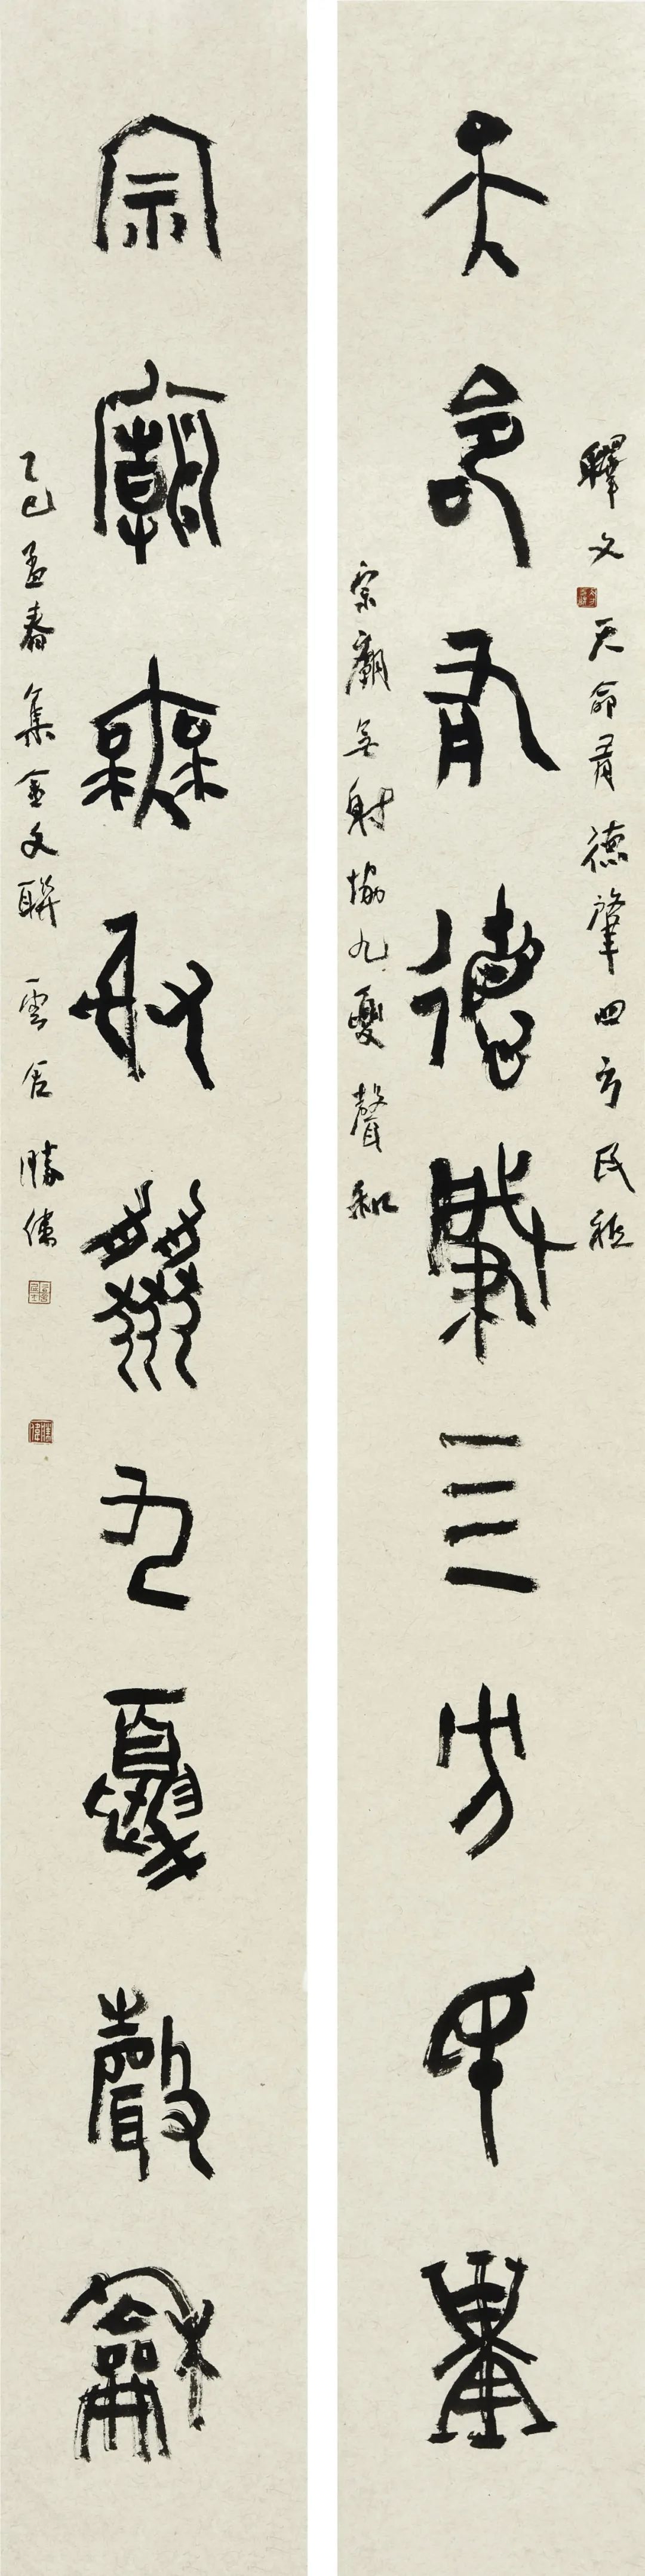 天命有德肇四方民祗
宗廟無射協九夏聲龢
釋文 天命有德肇四方民祗
宗廟無射協九夏聲和
乙巳孟春集金文聯 雲 勝